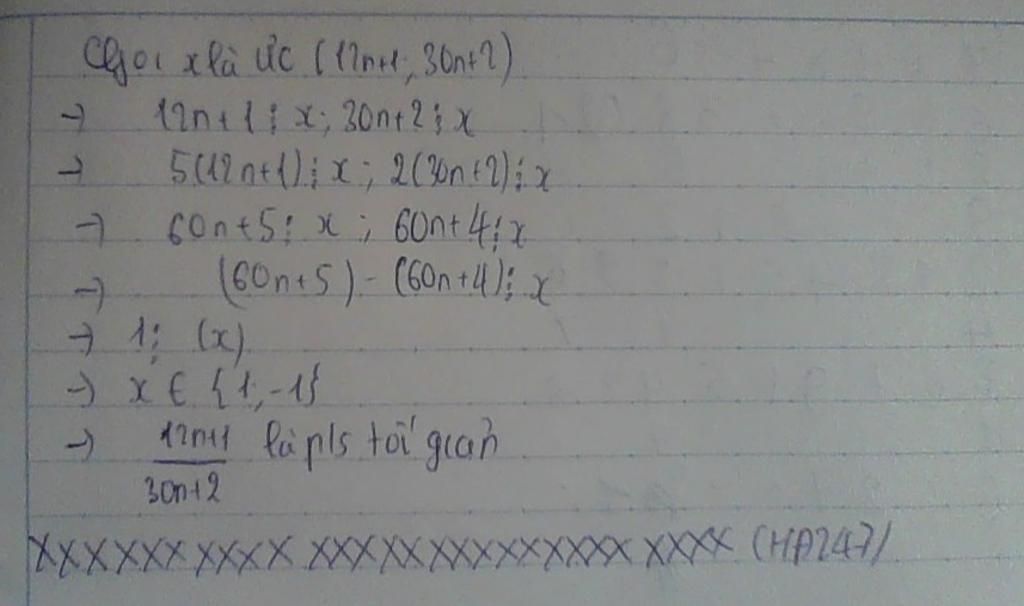 Gọi x là ƯC (12n+1, 30n+2)
→ 12n+1 ⋮ x; 30n+2 ⋮ x
→ 5(12n+1) ⋮ x; 2(30n+2) ⋮ x
→ 60n+5 ⋮ x; 60n+4 ⋮ x
→ (60n+5) - (60n+4) ⋮ x
→ 1 ⋮ (x)
→ x ∈ {1, -1}
→ 12n+1/30n+2 là p/s tối giản
XXXXXX XXXX XXXXXXXXXXXXXX XXXX (HA247)